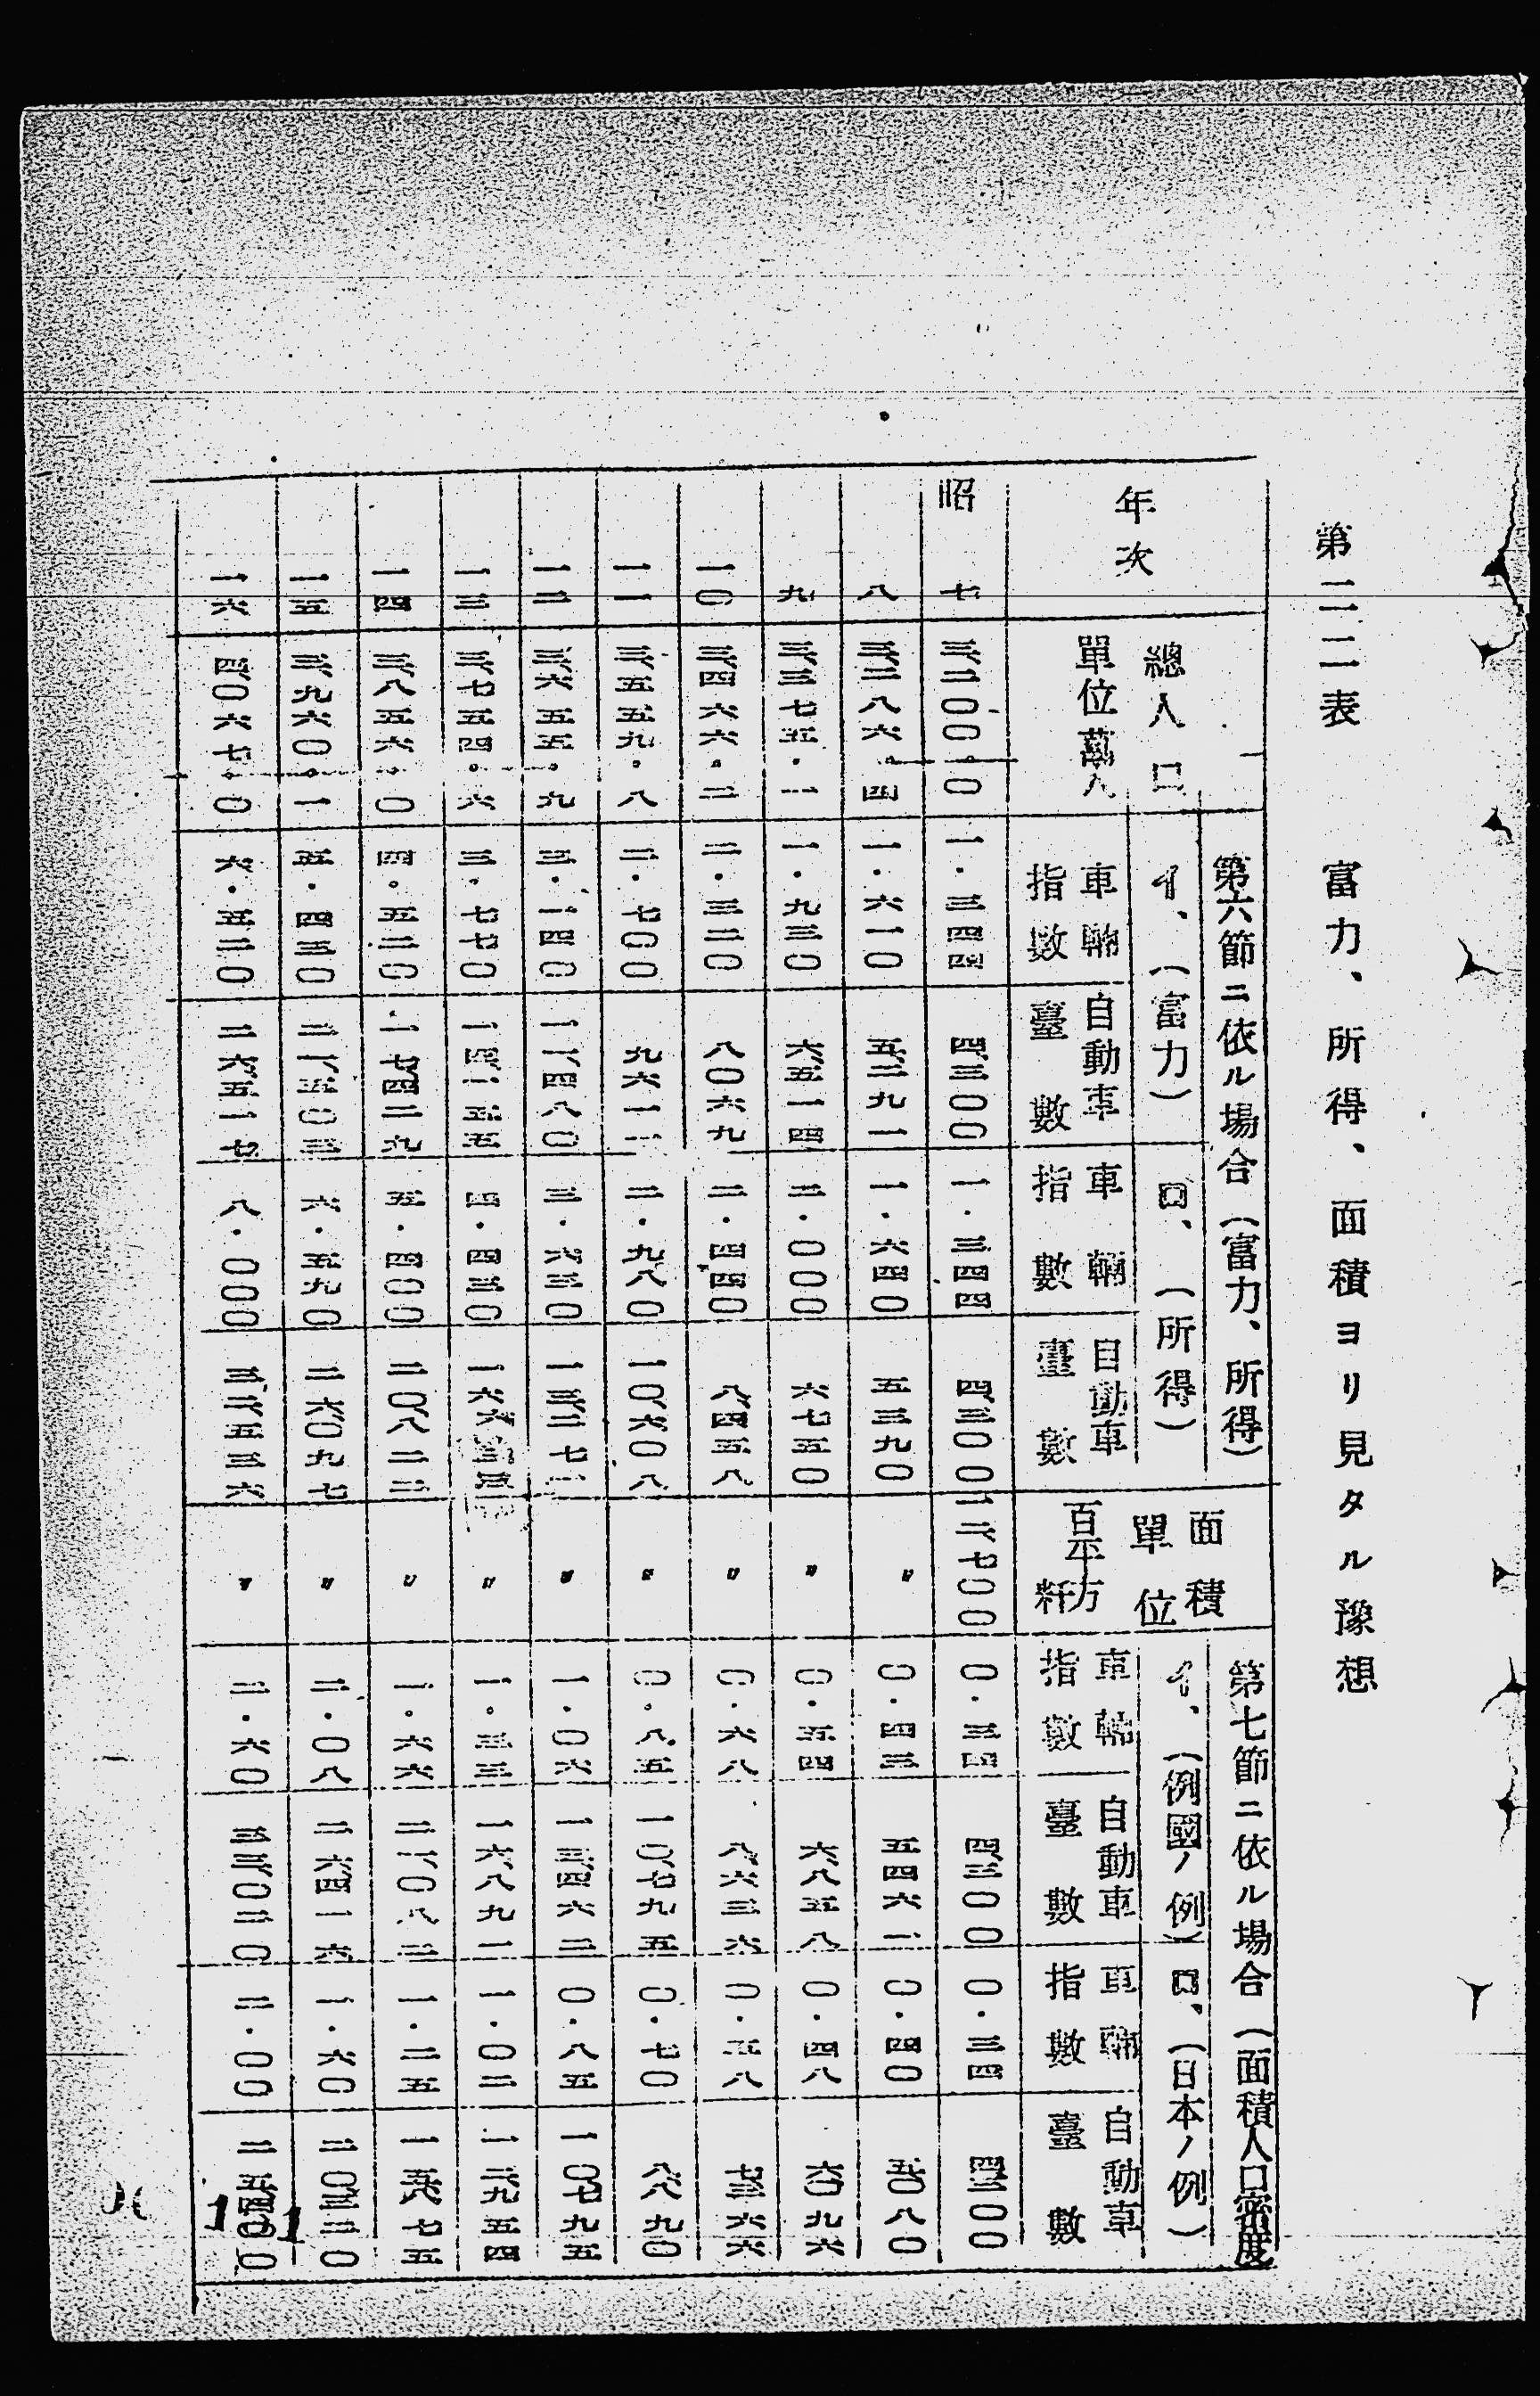 第二二表　富力、所得、面積ヨリ見タル豫想
年次　總人口　單位萬人　第六節ニ依ル場合（富力、所得）　面積　單位　百平方粁　第七節ニ依ル場合（面積人口密度
イ、（富力）　ロ、（所得）　イ、（例國ノ例）　ロ、（日本ノ例）
車輛指數　自動車臺數　車輛指數　自動車臺數　車輛指數　自動車臺數　車輛指數　自動車臺數
昭　七　三、二〇〇.〇　一.三四四　四、三〇〇　一.三四四　四、三〇〇　一二、七〇〇　〇.三四　四、三〇〇　〇.三四　四、三〇〇
八　三、二八六.四　一.六一〇　五、二九一　一.六四〇　五三九〇　〃　〇.四三　五四六一　〇.四〇　五、〇八〇
九　三、三七五.一　一.九三〇　六、五一四　二.〇〇〇　六七五〇　〃　〇.五四　六、八五八　〇.四八　六、〇九六
一〇　三、四六六.二　二.三二〇　八〇六九　二.四四〇　八、四五八　〃　〇.六八　八、六三六　〇.五八　七、三六六
一一　三、五五九.八　二.七〇〇　九六一一　二.九八〇　一〇、六〇八　〃　〇.八五　一〇、七九五　〇.七〇　八、八九〇
一二　三、六五五.九　三.一四〇　一一、四八〇　三.六三〇　一三、二七一　〃　一.〇六　一三、四六二　〇.八五　一〇、七九五
一三　三、七五四.六　三.七七〇　一四、一五五　四.四三〇　一六、六三三　〃　一.三三　一六、八九一　一.〇二　一二、九五四
一四　三、八五六.〇　四.五二〇　一七、四二九　五.四〇〇　二〇、八二二　〃　一.六六　二一、〇八二　一.二五　一五、八七五
一五　三、九六〇.一　五.四三〇　二一、五〇三　六.五九〇　二六、〇九七　〃　二.〇八　二六四一六　一.六〇　二〇、三二〇
一六　四、〇六七.〇　六.五二〇　二六、五一七　八.〇〇〇　三二、五三六　〃　二.六〇　三三、〇二〇　二.〇〇　二五、四〇〇